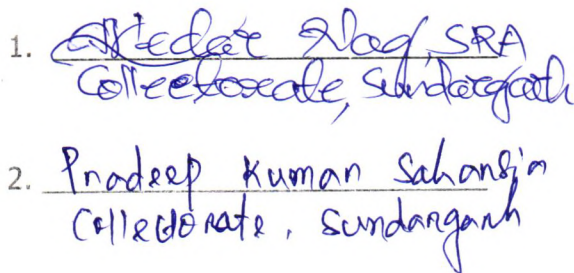 1. Kedar Nag, SRA
Collectorate, Sundargarh
2. Pradeep Kuman Sahansia
Collectorate, Sundargarh